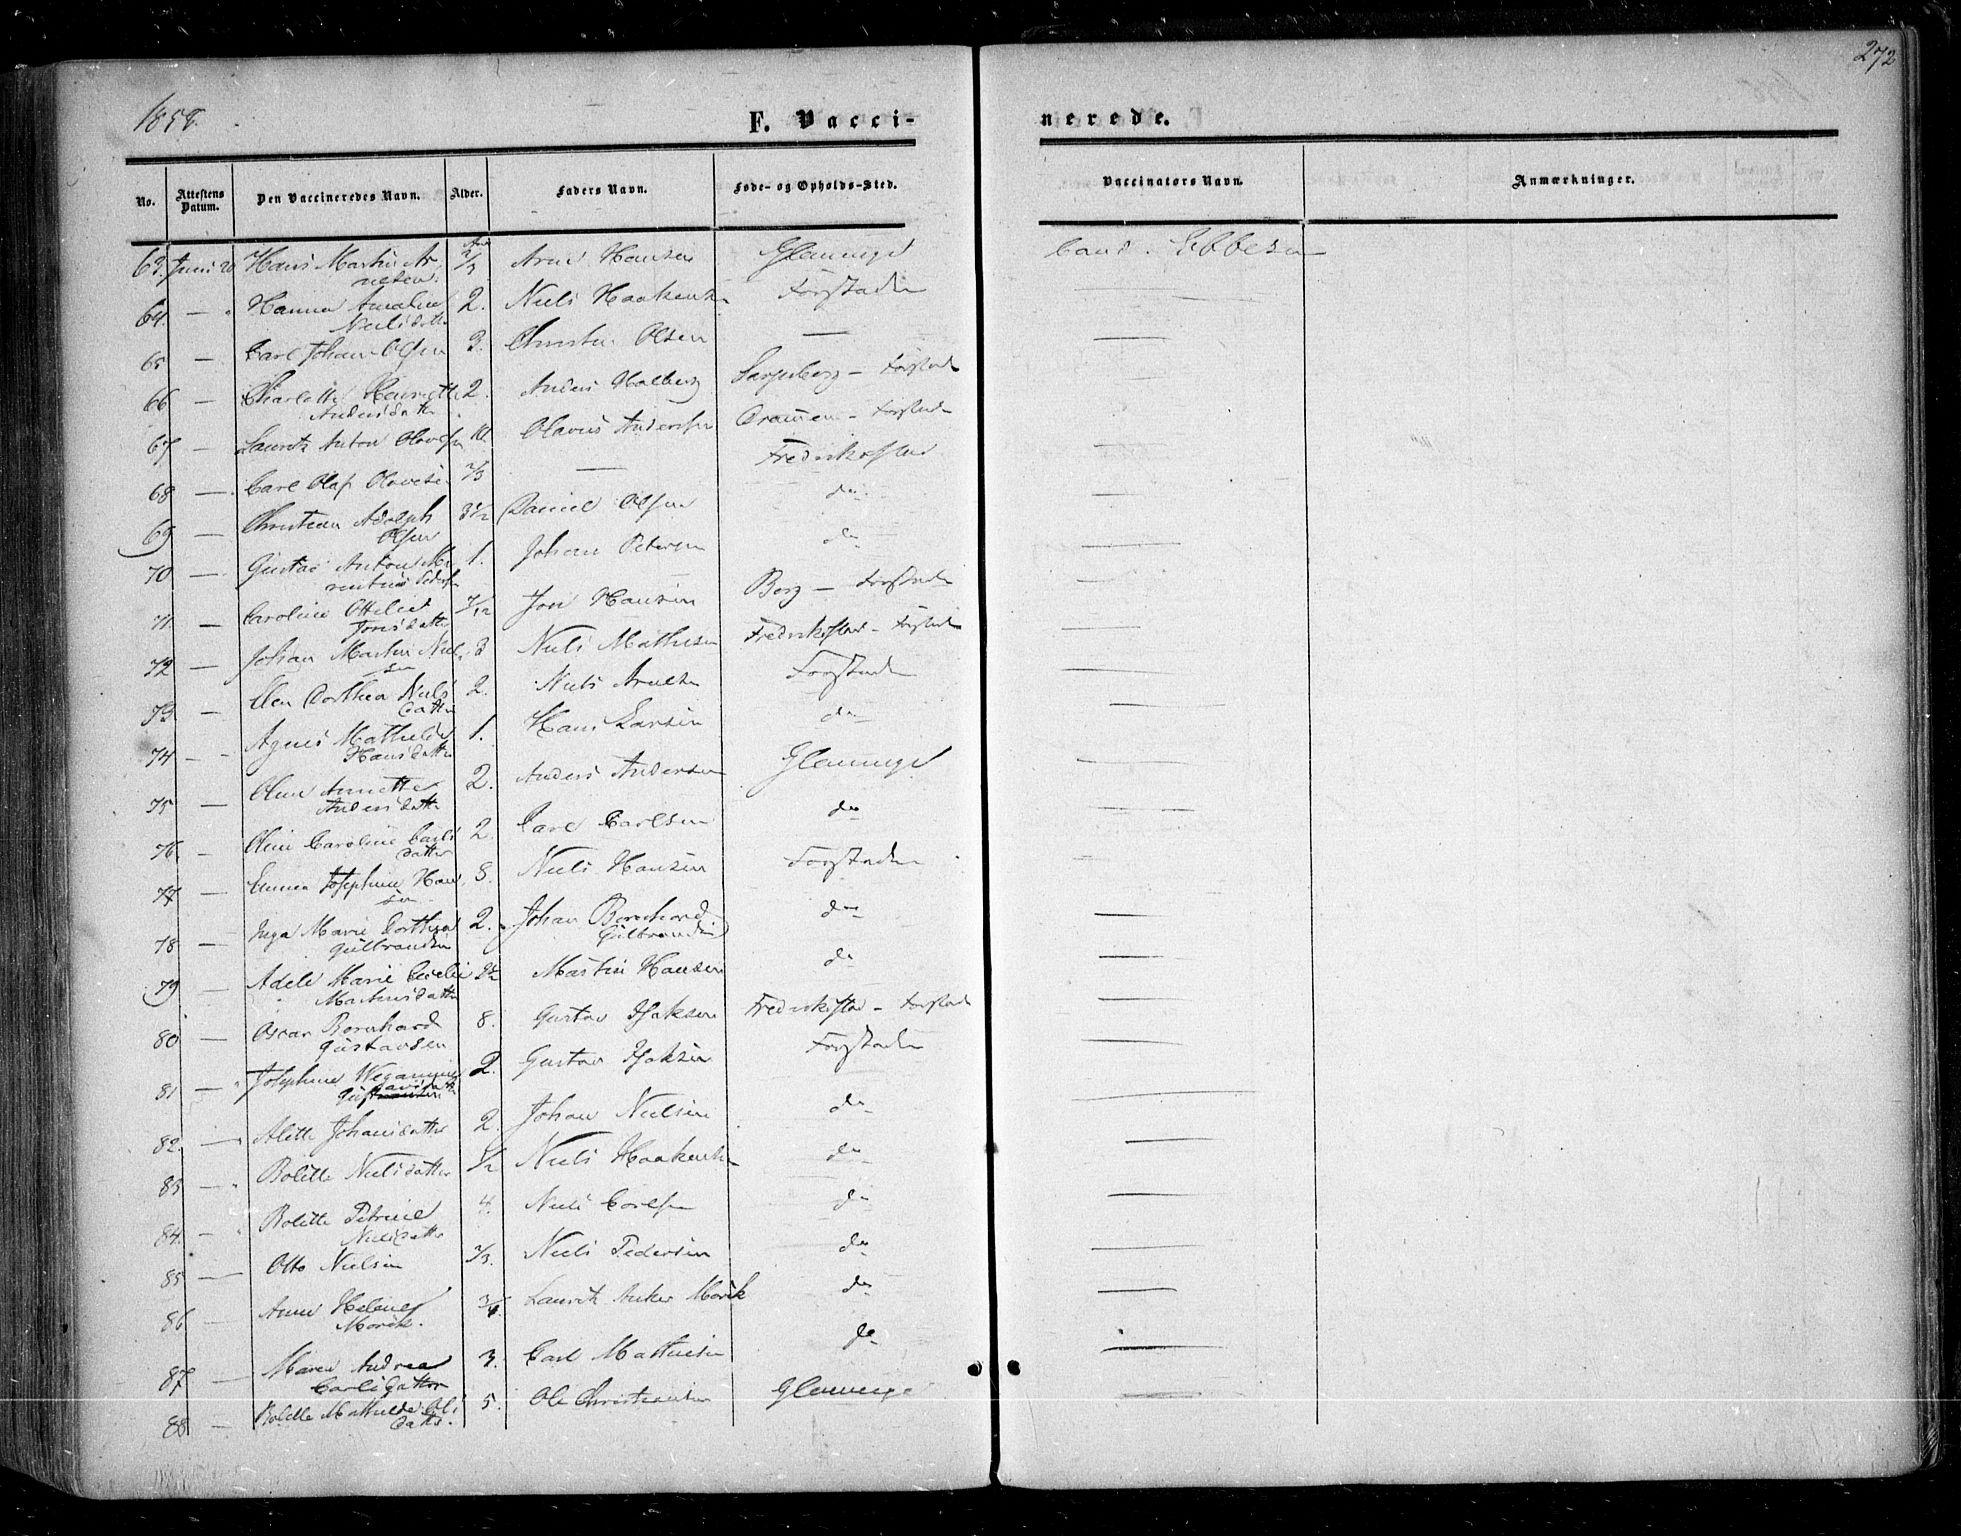 272
1858.
F. Vacci-
nerede.
No. Attestens Datum. Den Vaccineredes Navn. Alder. Faders Navn. Føde- og Opholds-Sted. Vaccinators Navn. Anmærkninger.
63. Juni 20 Hans Martin Ar- 2/3 Arne Hansen Glemminge Cand. Ebbesen
nesen.
64. — " Hanna Amalie 2. Niels Haakens Forstaden —
Nielsdatter
65 — Carl Johan Olsen 3. Christen Olsen — —
66 — Charlotte Henriette 2. Anders Holberg Sarpsborg - Forstad —
Andersdatter
67 — Lauritz Anton Olavesen 10. Olavus Andersen Drammen - Forstad —
68 — Carl Olaf Olavesen 2/3 — Fredrikstad —
69 — Christian Adolph 3½ Daniel Olsen do —
Olsen
70 — Gustav Anton 1. Johan Petersen do —
71 — Caroline Ottilie 7/12 Jon Hansen Borg — Forstaden —
Jonsdatter
72 — Johan Martin Niel- 3 Niels Mathisen Fredrikstad - Forstad —
sen
73 — Elen Dorthea Niels 2. Niels Arnesen Forstaden —
datter
74 — Agnes Mathilde 1. Hans Larsen do —
Hansdatter
75 — Oline Annette 2. Anders Andersen Glemminge —
Andersdatter
76. — Oline Caroline Carls 2. Carl Carlsen do —
datter
77 — Emma Josephine Han- 8. Niels Hansen Forstaden —
sen
78 — Inga Marie Dorthea 2. Johan Bernhard do —
Gulbrandsen Gulbrandsen
79 — Adele Marie Martin Hansen do —
Martinsdatter
80 — Oscar Bernhard 8. Gustav Isaksen Fredrikstad - Forstad —
Gustavsen
81 — " Josephine 2. Gustav Isaksen Forstaden —
82. — " Alette Johansdatter 2. Johan Nielsen do —
83 — " Bolette Nielsdatter ½ Niels Haakens do —
84. — Bolette Petrine 4. Niels Carlsen do —
Nielsdatter
85 — Otto Nielsen 2/3. Niels Pedersen do —
86 — Anne Helene 3/4. Lauritz Anker Morik do —
Morik.
87 — Maren Andrea 3. Carl Mathiesen do —
Carlsdatter
88 — Bolette Mathilde Ols 5. Ole Christiansen Glemminge —
datter.